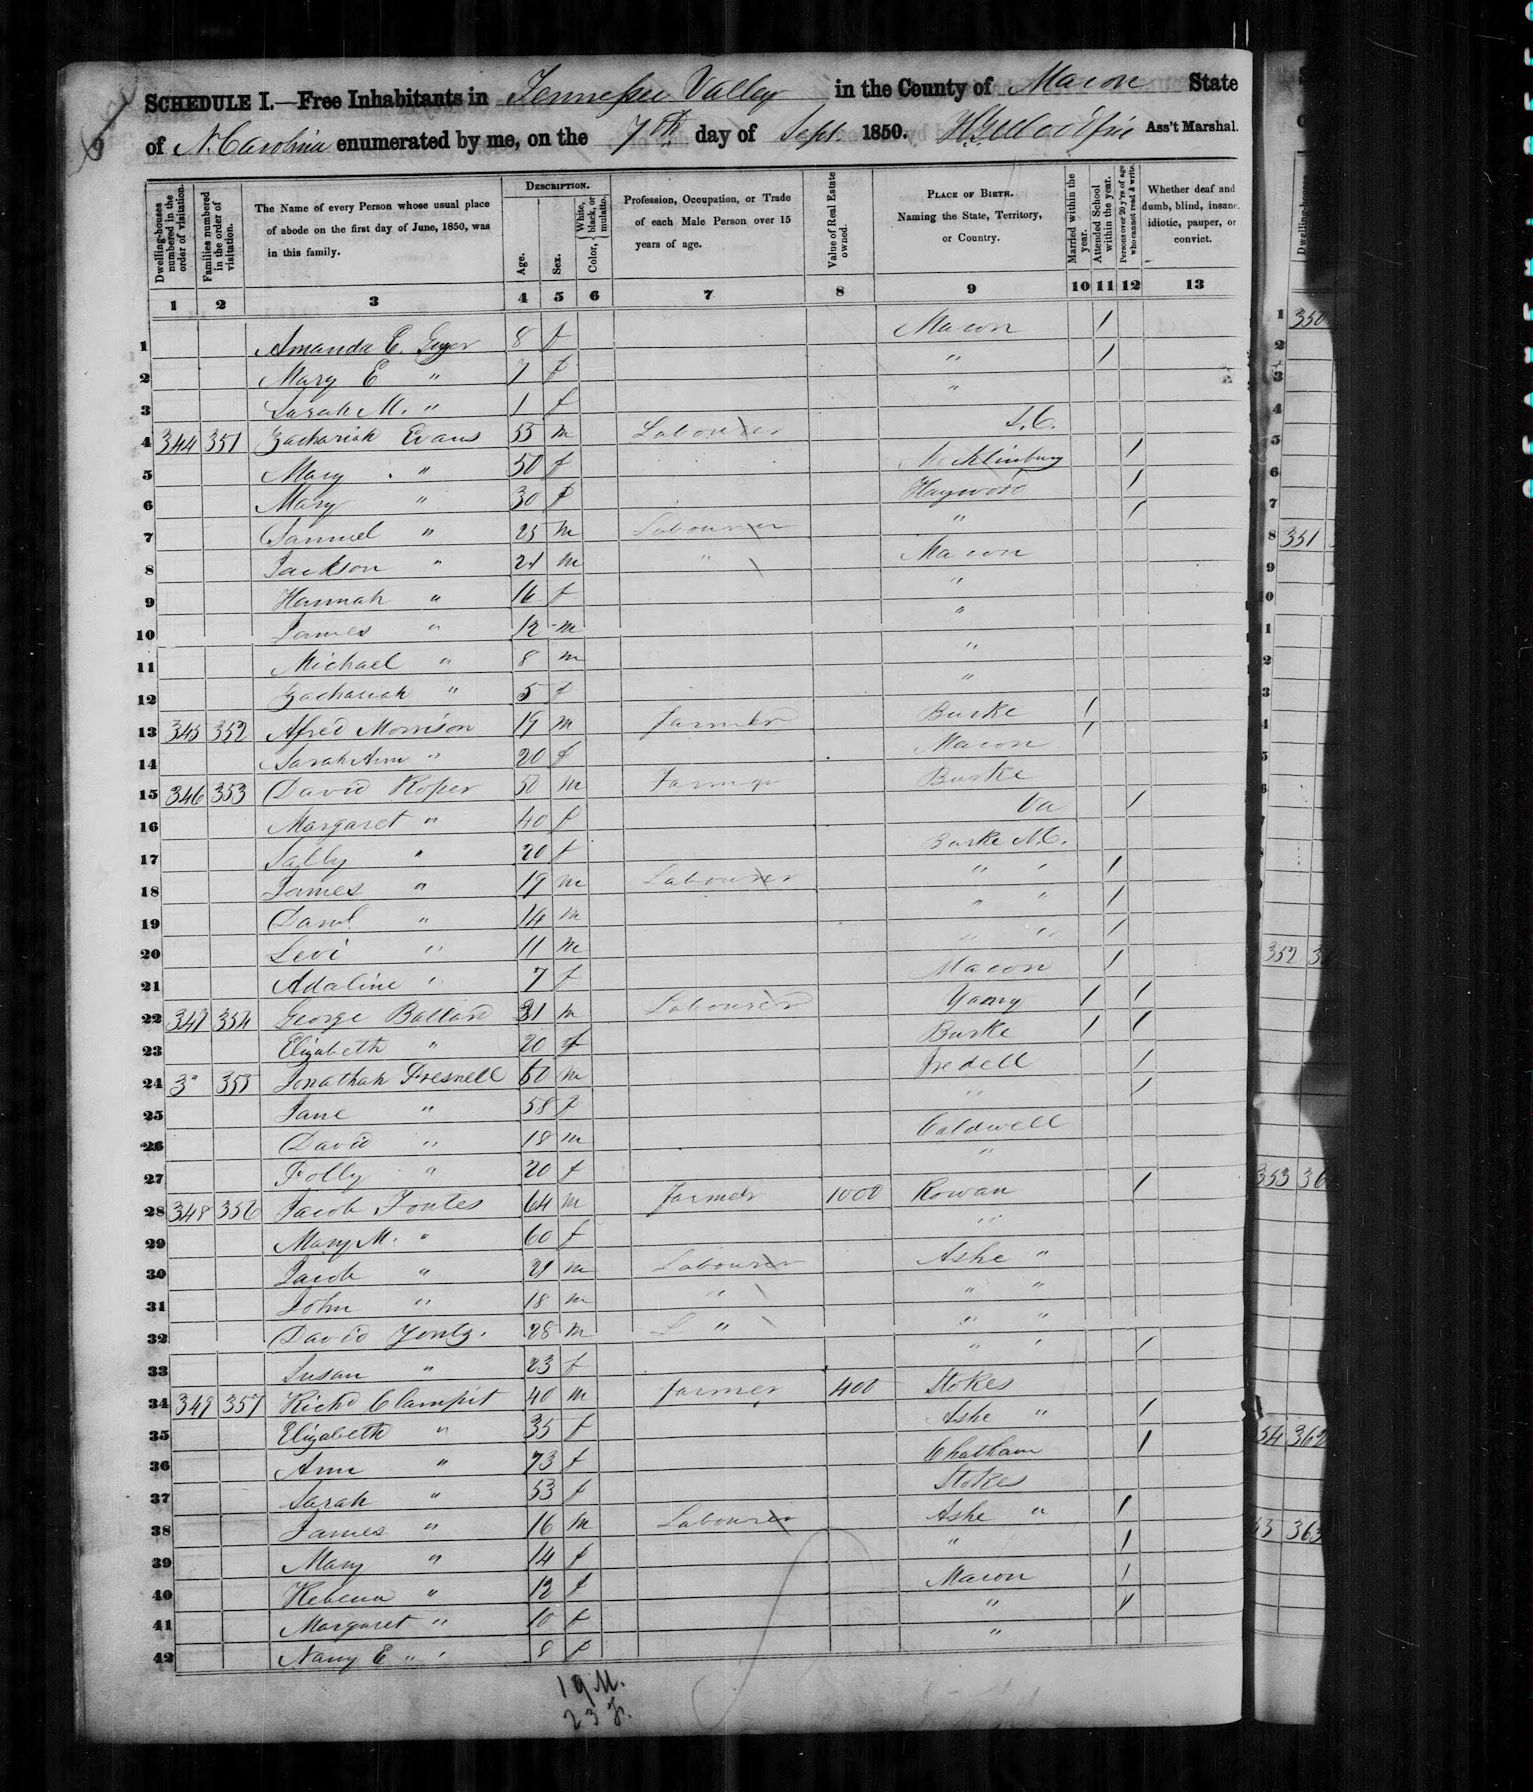 SCHEDULE I.—Free Inhabitants in Tennessee Valley in the County of Macon State
of N. Carolina enumerated by me, on the 7th day of Sept. 1850. Ass't Marshal.
Dwelling-houses numbered in the order of visitation.
Families numbered in the order of visitation.
The Name of every Person whose usual place of abode on the first day of June, 1850, was in this family.
DESCRIPTION.
Age.
Sex.
Color, White, black, or mulatto.
Profession, Occupation, or Trade of each Male Person over 15 years of age.
Value of Real Estate owned.
PLACE OF BIRTH.
Naming the State, Territory, or Country.
Married within the year.
Attended School within the year.
Persons over 20 y'rs of age who cannot read & write.
Whether deaf and dumb, blind, insane, idiotic, pauper, or convict.
1 2 3 4 5 6 7 8 9 10 11 12 13
1 Amanda E. 8 f Macon /
2 Mary E " 7 f " /
3 Sarah M. " 1 f "
4 344 351 Zachariah Evans 55 m Labourer S.C.
5 Mary " 50 f /
6 Mary " 30 f Haywood /
7 Samuel " 25 m Labourer " /
8 Jackson " 21 m " Macon
9 Hannah " 16 f "
10 James " 12 m "
11 Michael " 8 m "
12 Zachariah " 5 f "
13 345 352 Alfred Morrison 19 m Farmer Burke /
14 Sarah Ann " 20 f Macon /
15 346 353 David Roper 50 m Farmer Burke
16 Margaret " 40 f Va /
17 Sally " 20 f Burke N.C.
18 James " 19 m Labourer " " /
19 Danl. " 14 m " " /
20 Levi " 11 m " " /
21 Adaline " 7 f Macon /
22 347 354 George Ballard m Labourer Yancy / /
23 Elizabeth " 20 f Burke / /
24 355 Jonathah Presnell m Iredell /
25 Jane " 58 f " /
26 David " 18 m Caldwell
27 Polly " 20 f "
28 348 356 Jacob Fouts 64 m Farmer 1000 Rowan /
29 Mary M. " 60 f "
30 Jacob " 21 m Labourer Ashe "
31 John " 18 m " " "
32 David 28 m " " "
33 Susan " 23 f " " /
34 349 357 Richd Clampit 40 m Farmer 400 Stokes
35 Elizabeth " 35 f Ashe " /
36 Ann " 73 f Chatham /
37 Sarah " 53 f Stokes
38 James " 16 m Labourer Ashe " /
39 Mary " 14 f " /
40 Rebecca " 12 f Macon /
41 Margaret " 10 f " /
42 Nancy E " 8 f "
19 M.
23 F.
350
351
352
353
54 362
363